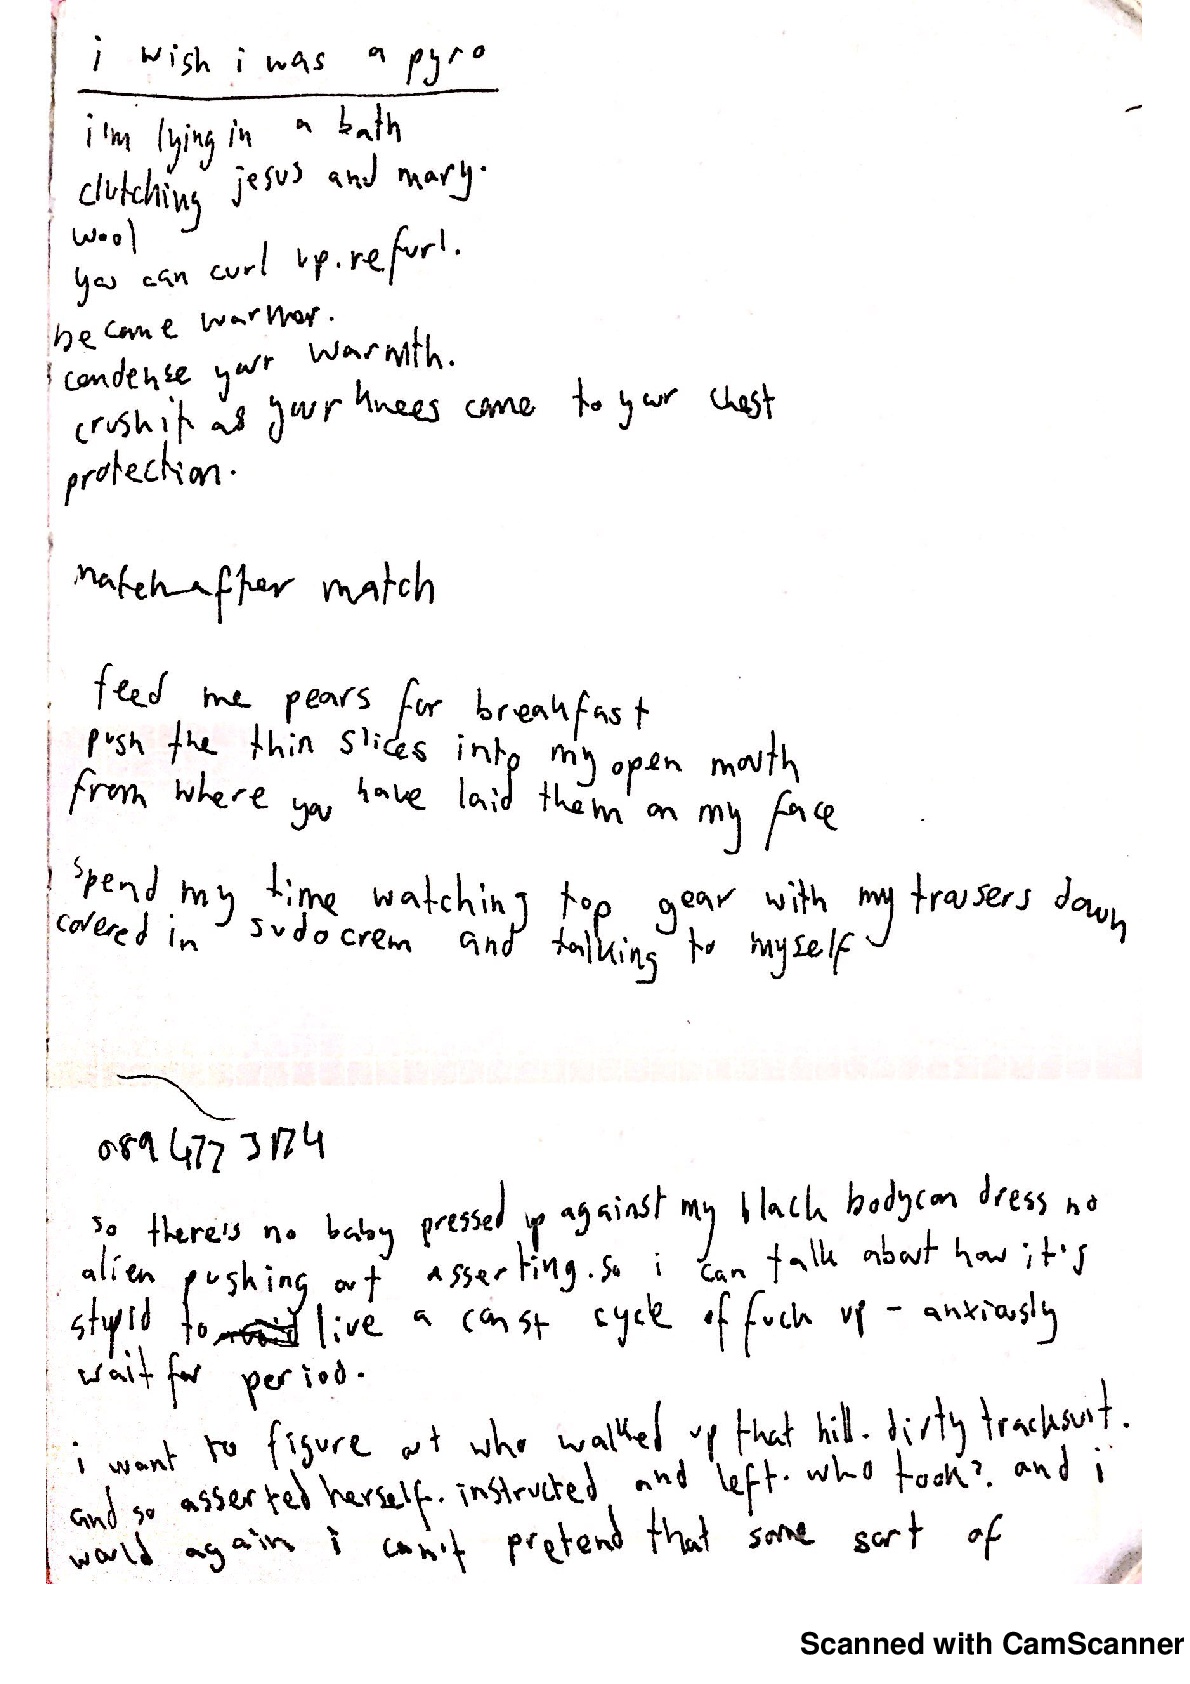 i wish i was a pyro
i'm lying in a bath
clutching jesus and mary.
wool
you can curl up. refurl.
become warmer.
condense your warmth.
crush it as your knees come to your chest
protection.
match after match
feed me pears for breakfast
push the thin slices into my open mouth
from where you have laid them on my face
spend my time watching top gear with my trousers down
covered in sudocrem and talking to myself
089 477 3174
so there's no baby pressed up against my black bodycon dress no
alien pushing out asserting. so i can talk about how it's
stupid to live a const cycle of fuck up - anxiously
wait for period.
i want to figure out who walked up that hill. dirty tracksuit.
and so asserted herself. instructed and left. who took?. and i
would again i can't pretend that some sort of
Scanned with CamScanner